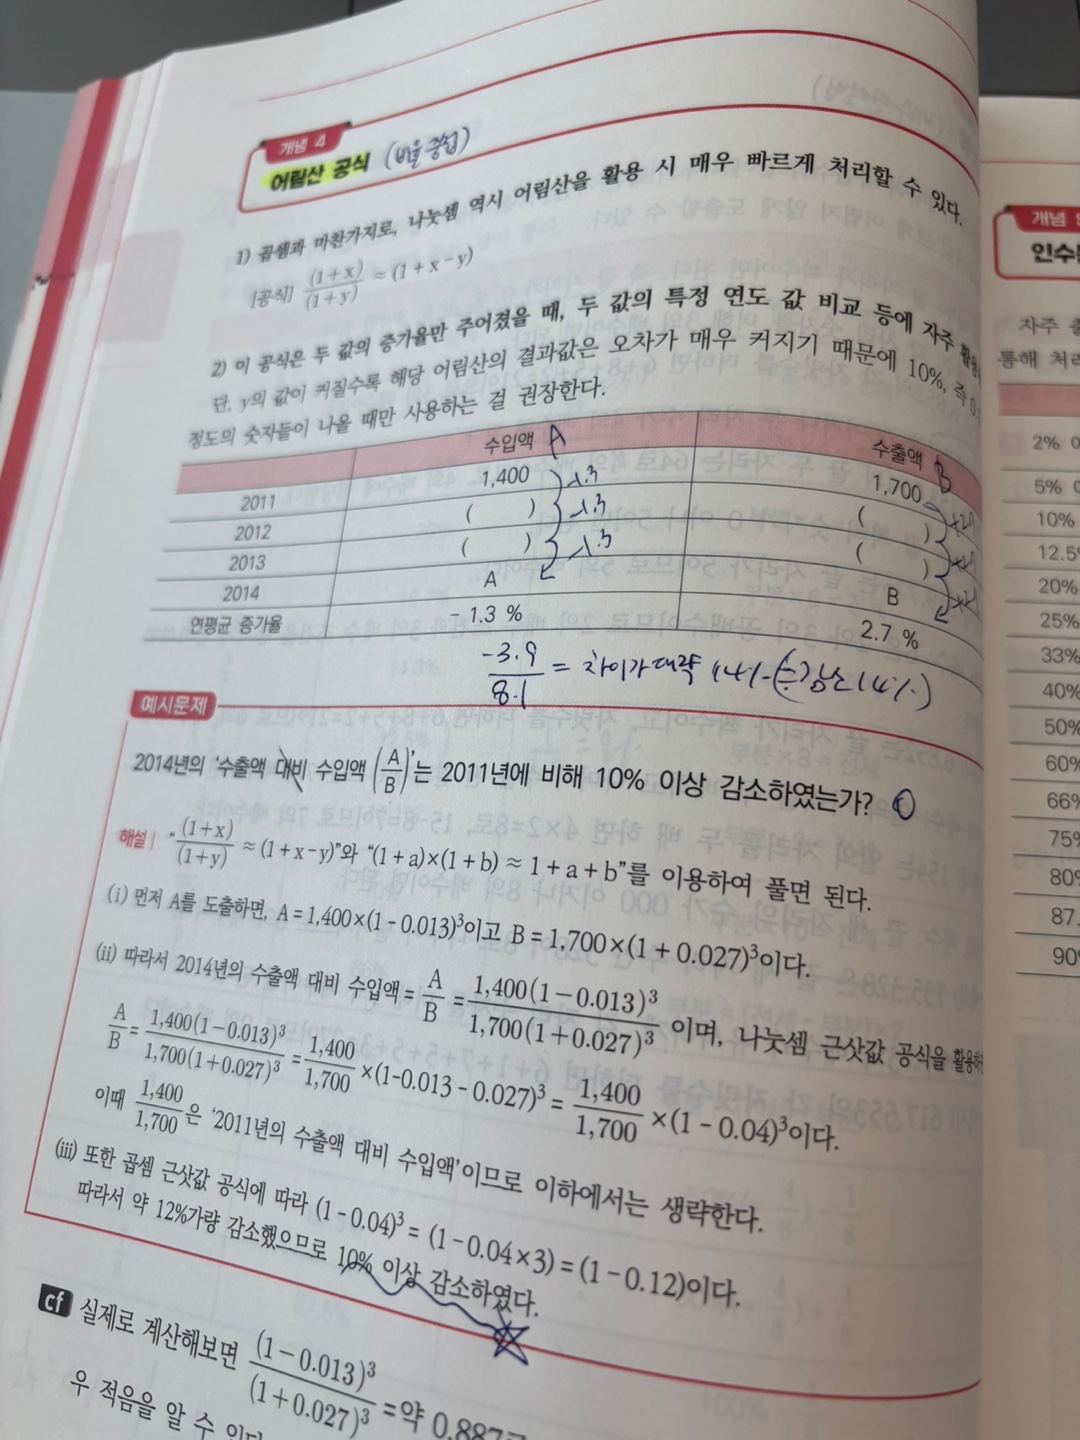 개념 4
어림산 공식 (비율 중첩)
1) 곱셈과 마찬가지로, 나눗셈 역시 어림산을 활용 시 매우 빠르게 처리할 수 있다.
[공식] (1+x)/(1+y) ≈ (1+x-y)
2) 이 공식은 두 값의 증가율만 주어졌을 때, 두 값의 특정 연도 값 비교 등에 자주
단, y의 값이 커질수록 해당 어림산의 결과값은 오차가 매우 커지기 때문에 10%, 즉
정도의 숫자들이 나올 때만 사용하는 걸 권장한다.
수입액 A 수출액 B
2011 1,400 1,700
2012 ( ) ( )
2013 ( ) ( )
2014 A B
연평균 증가율 -1.3 % 2.7 %
-3.9/8.1 = 차이가 대략 14%
예시문제
2014년의 '수출액 대비 수입액(A/B)'는 2011년에 비해 10% 이상 감소하였는가? O
해설 | "(1+x)/(1+y) ≈ (1+x-y)"와 "(1+a)×(1+b) ≈ 1+a+b"를 이용하여 풀면 된다.
(i) 먼저 A를 도출하면, A=1,400×(1-0.013)³이고 B=1,700×(1+0.027)³이다.
(ii) 따라서 2014년의 수출액 대비 수입액= A/B = 1,400(1-0.013)³/1,700(1+0.027)³ 이며, 나눗셈 근삿값 공식을
A/B = 1,400(1-0.013)³/1,700(1+0.027)³ = 1,400/1,700 ×(1-0.013-0.027)³ = 1,400/1,700 ×(1-0.04)³이다.
이때 1,400/1,700은 '2011년의 수출액 대비 수입액'이므로 이하에서는 생략한다.
(iii) 또한 곱셈 근삿값 공식에 따라 (1-0.04)³=(1-0.04×3)=(1-0.12)이다.
따라서 약 12%가량 감소했으므로 10% 이상 감소하였다.
cf 실제로 계산해보면 (1-0.013)³/(1+0.027)³ =약
우 적음을 알 수
개념
자주
통해
2%
5%
10%
12.5
20%
25%
33%
40%
50%
60%
66%
75%
80%
87.
90%